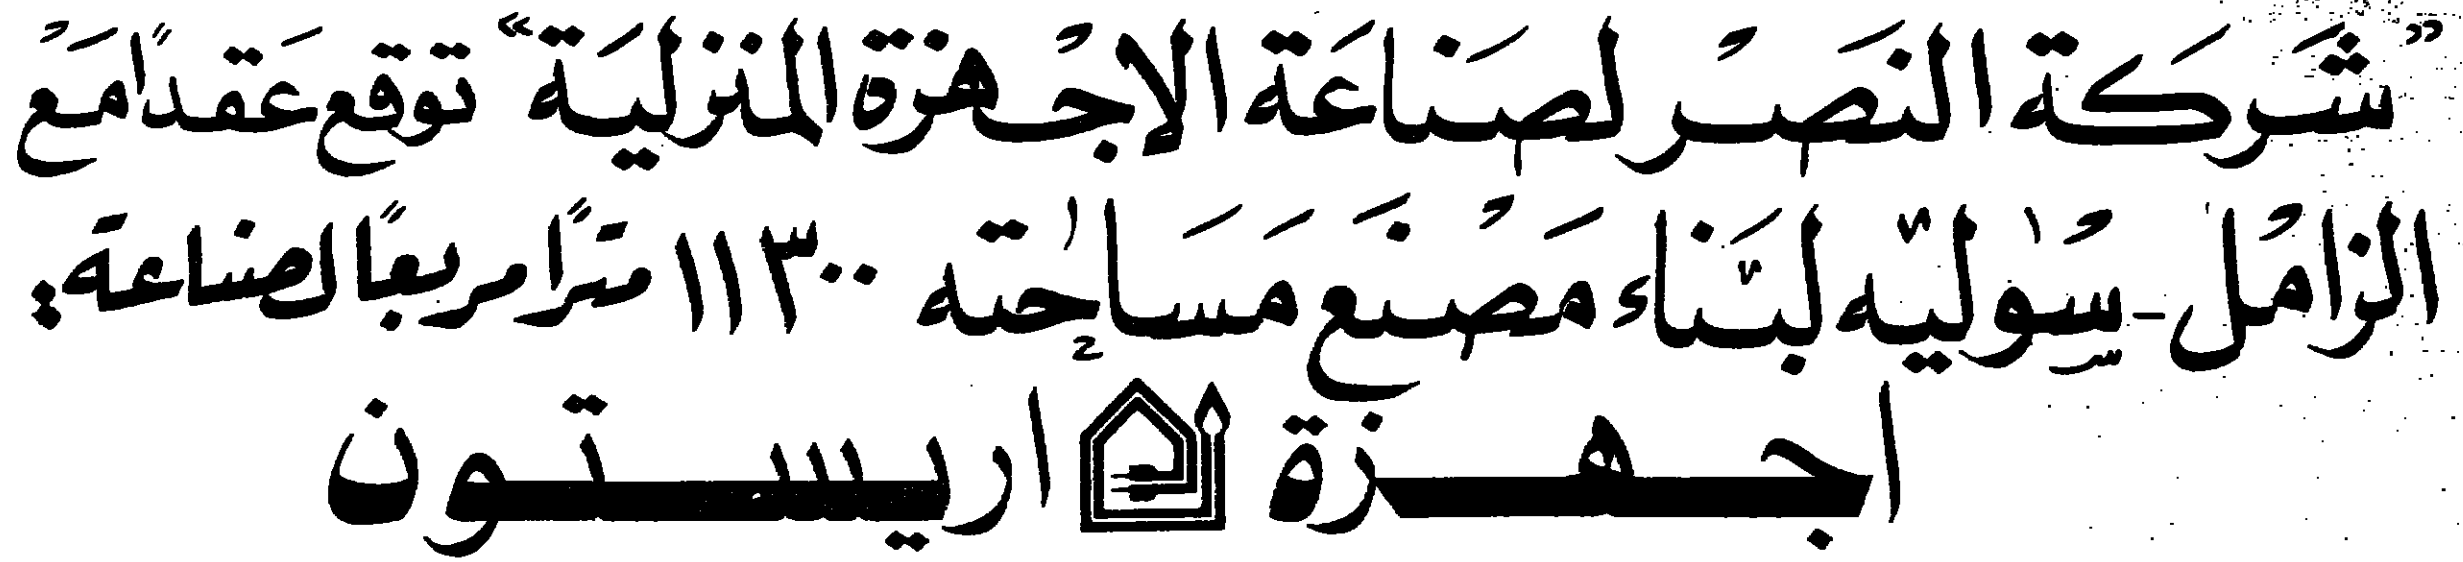 "شركة النصر لصناعة الاجهزة المنزلية" توقع عقداً مع
الزامل - سوليه لبناء مصنع مساحته ١١٣٠٠ متراً مربعاً لصناعة :
اجهزة اريستون